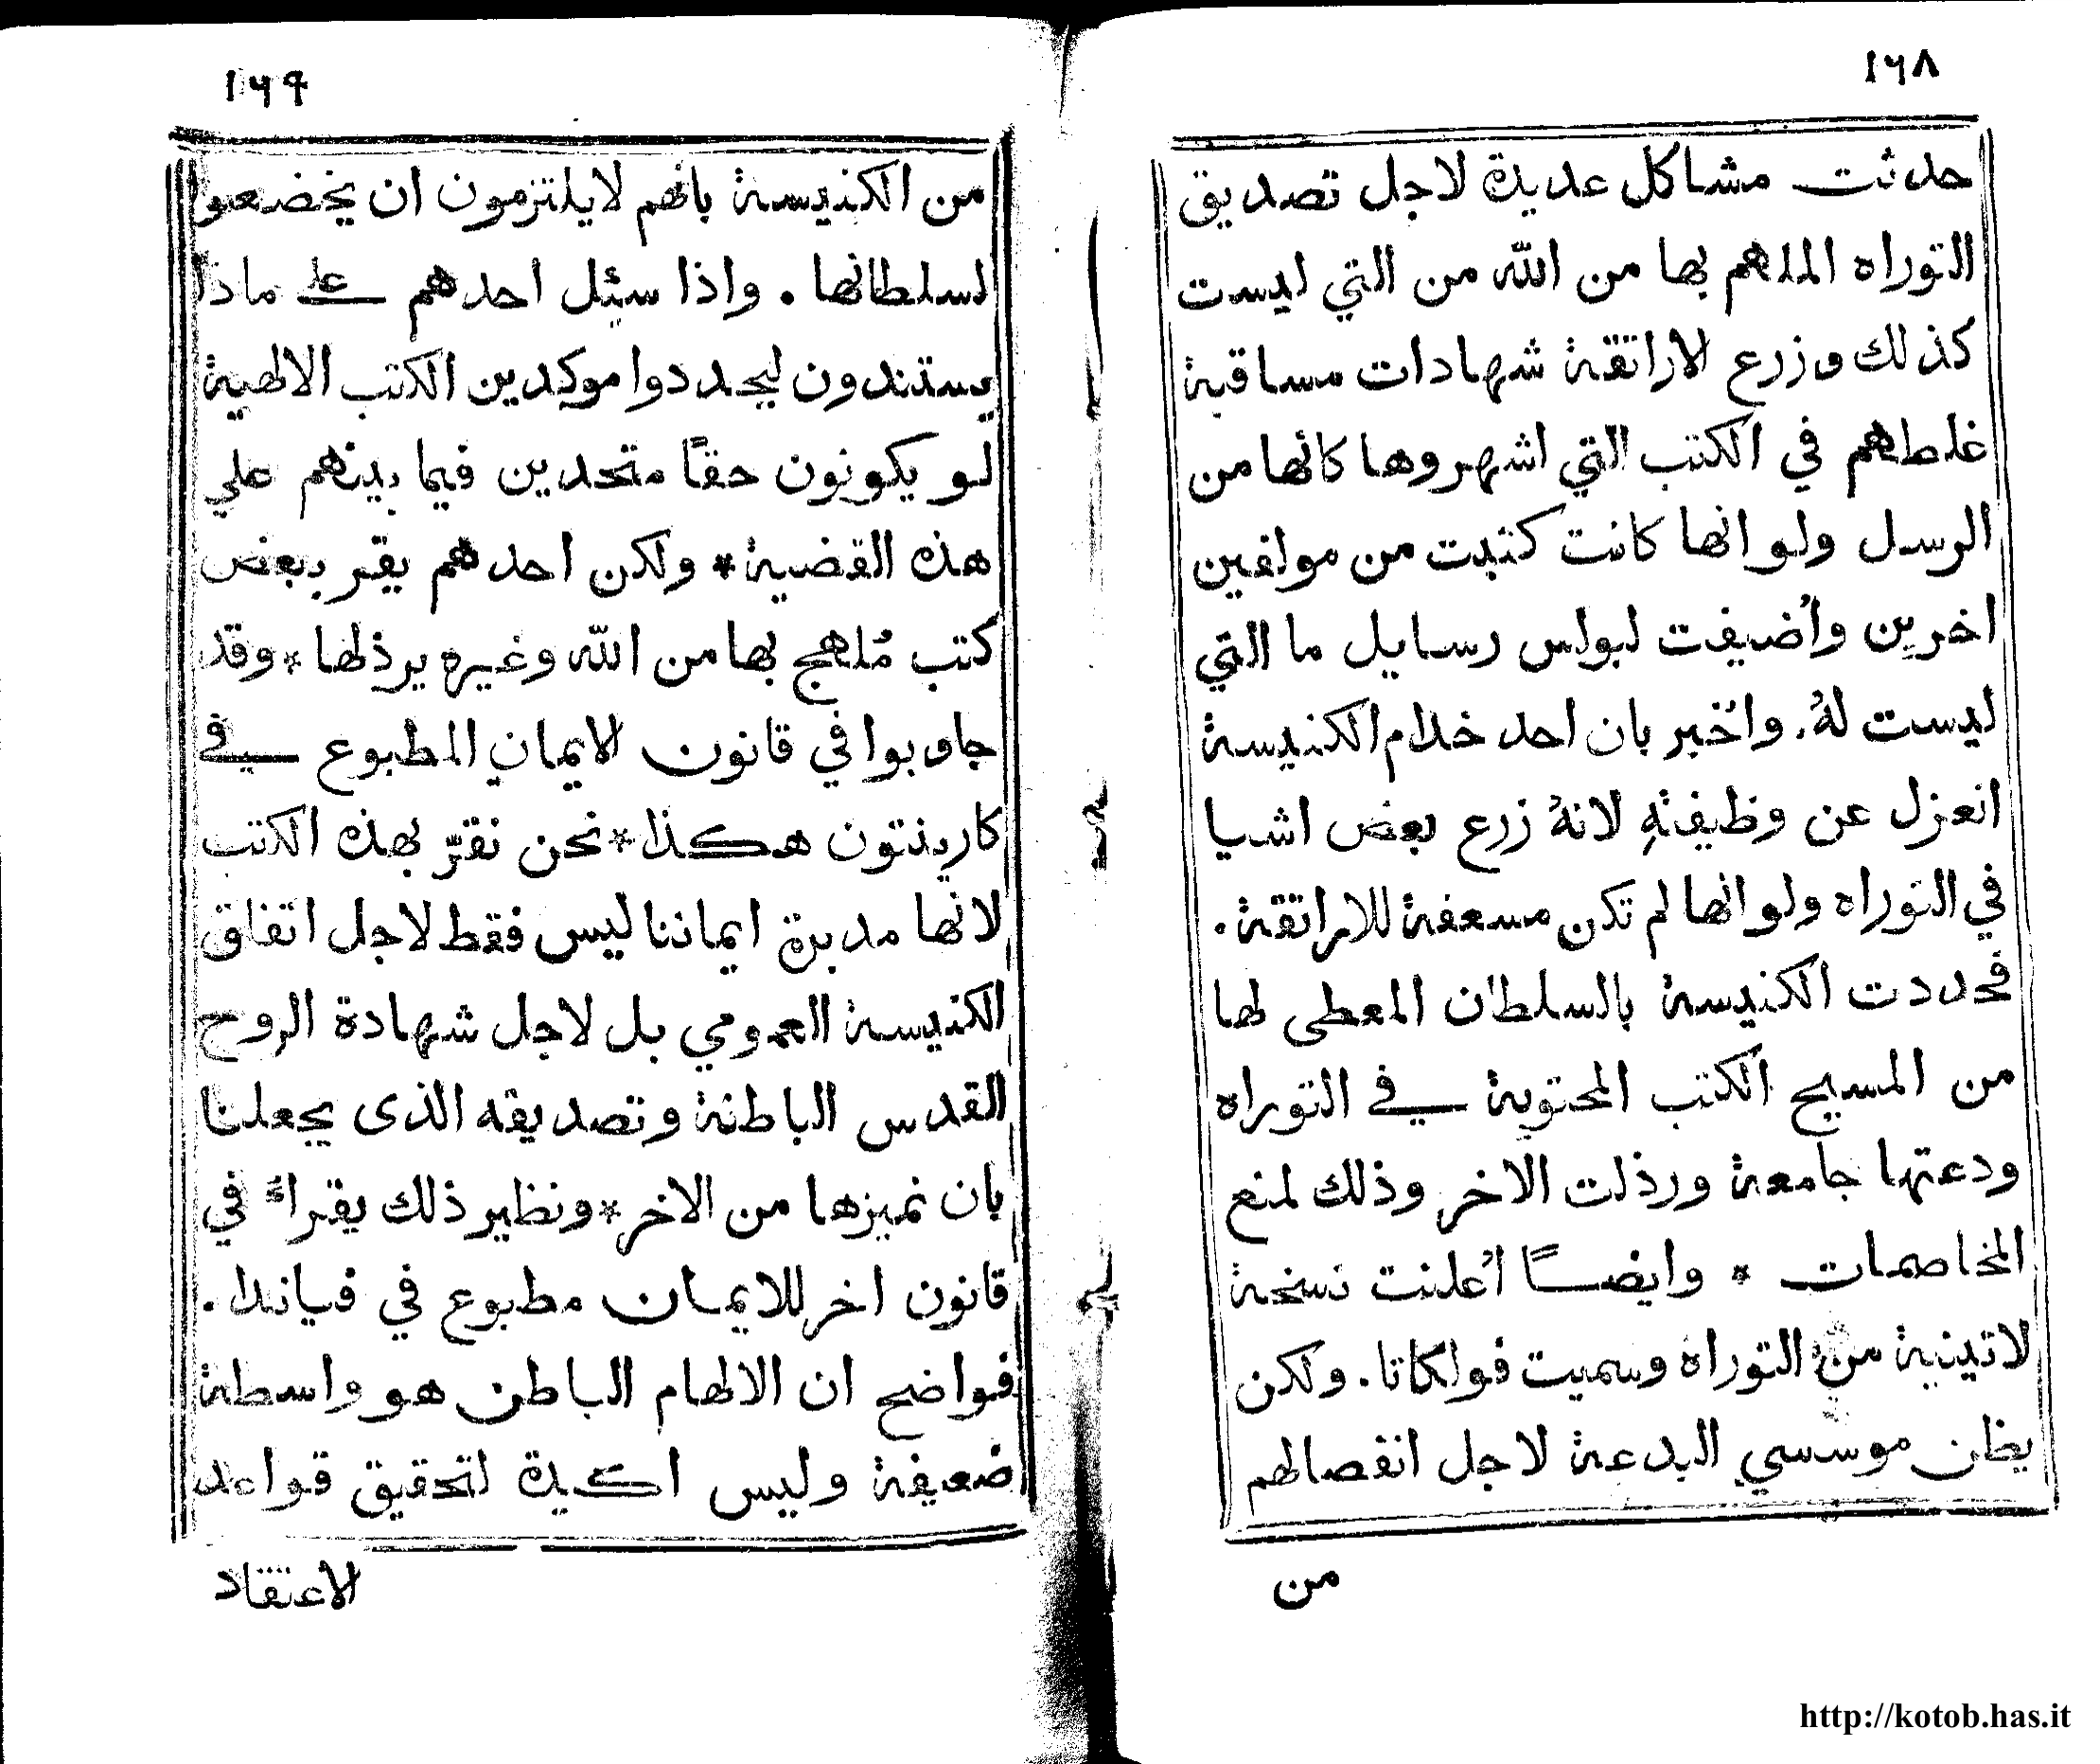 ١٦٨
حدثت مشاكل عديدة لاجل تصديق
التوراه الملهم بها من الله من التي ليست
كذلك وزرع الاراتقة شهادات مساقبة
غلطهم في الكتب التي اشهروها كأنها من
الرسل ولو انها كانت كتبت من مولفين
اخرين وأُضيفت لبولس رسايل ما التي
ليست لهُ. واُخبر بان احد خدام الكنيسة
انعزل عن وظيفتهِ لانهُ زرع بعض اشيا
في التوراه ولو انها لم تكن مسعفة للاراتقة.
فحددت الكنيسة بالسلطان المعطى لها
من المسيح الكتب المحتوية في التوراه
ودعتها جامعة ورذلت الاخر وذلك لمنع
المخاصمات * وايضـــاً اُعلنت نسخة
لاتينية من التوراه وسميت فولكاتا. ولكن
يظن موسسي البدعة لاجل انفصالهم
من
١٦٩
من الكنيسة بانهم لا يلتزمون ان يخضعوا
لسلطانها. واذا سيُل احدهم على ماذا
يستندون ليجددوا موكدين الكتب الالهية
لو يكونون حقاً متحدين فيما بينهم علي
هذه القضية * ولكن احدهم يقر ببعض
كتب مُلهج بها من الله وغيره يرذلها * وقد
جاوبوا في قانون الايمان المطبوع في
كارينتون هكذا * نحن نقرّ بهذه الكتب
لانها مدبرة ايماننا ليس فقط لاجل اتفاق
الكنيسة العمومي بل لاجل شهادة الروح
القدس الباطنة وتصديقه الذى يجعلنا
بان نميزها من الاخر * ونظير ذلك يقراءُ في
قانون اخر للايمان مطبوع في فياندا.
فواضح ان الالهام الباطن هو واسطة
ضعيفة وليس اكيدة لتحقيق قواعد
الاعتقاد
http://kotob.has.it